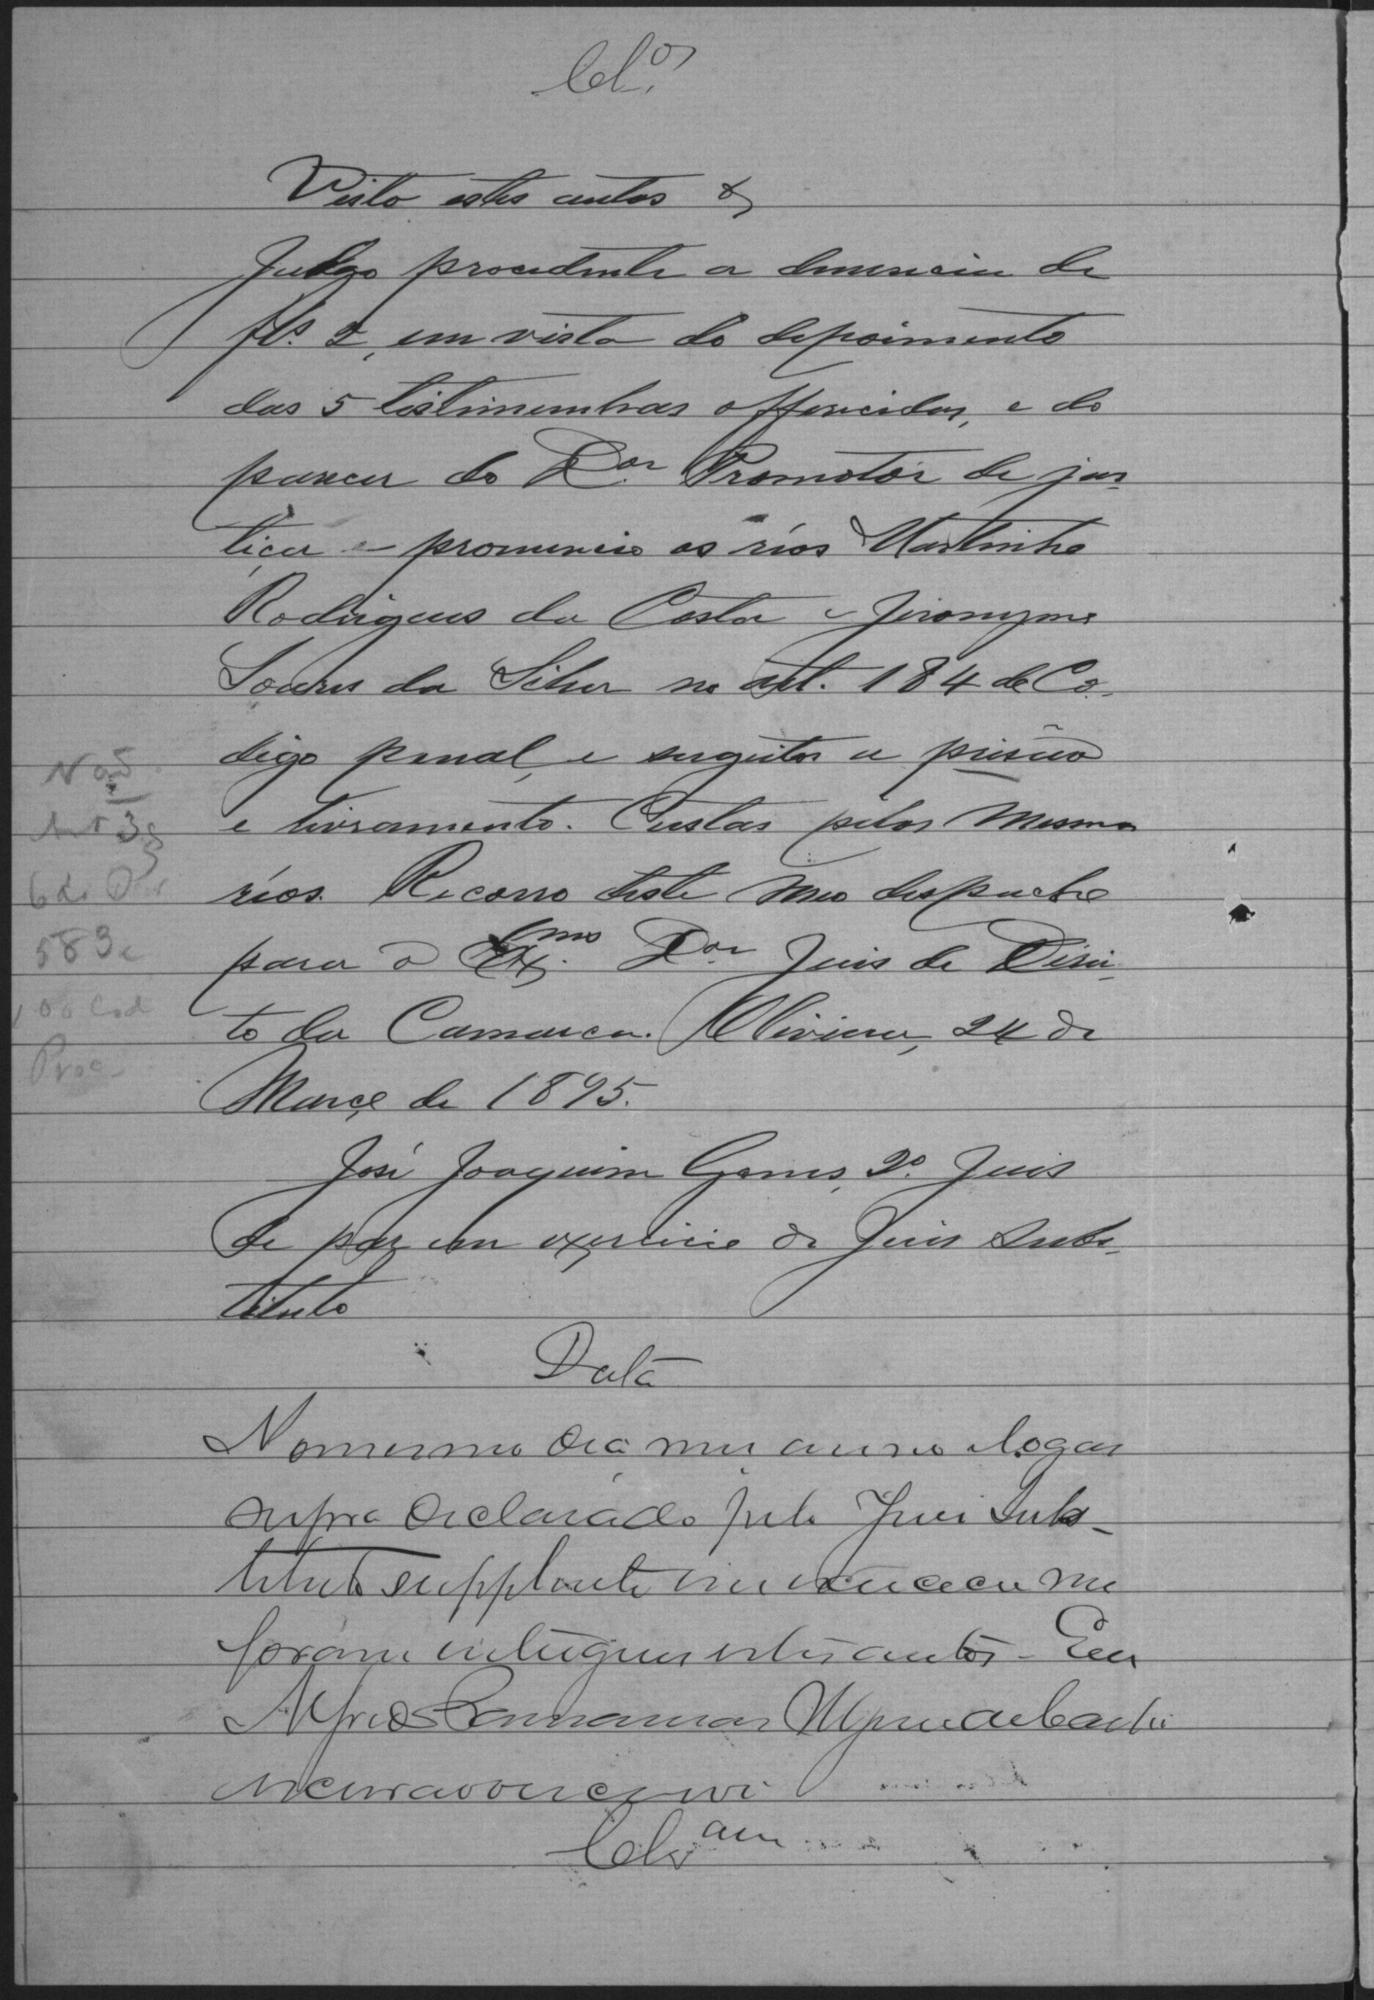 Cl.os
Visto estes autos &
Julgo procedente a denuncia de
fls. 2, em vista do depoimento
das 5 testimunhas offerecidas, e do
parecer do Dor. Promotor de jus-
tiça - pronuncio os réos Martinho
Rodrigues da Costa e Jeronymo
Soares da Silva no art. 184 do Co-
digo penal, e sugeitos a prisão
e livramento. Custas pelos mesmos
réos. Recorro deste meo despacho
para o Exmo. Dor. Juis de Direi-
to da Comarca. Oliveira, 24 de
Março de 1895.
José Joaquim Gomes, 2º Juis
de paz em exercicio de Juis subs-
tituto
Data
No mesmo dia mez anno e logar
supra declarado pelo Juiz Subs-
tituto supplente em exercicio me
foram entregues estes autos - Eu
Alfredo
escrivão o escrevi
Clsam
No 5
Art 3 §
6 do Dec
583 e
100 Cod
Proc